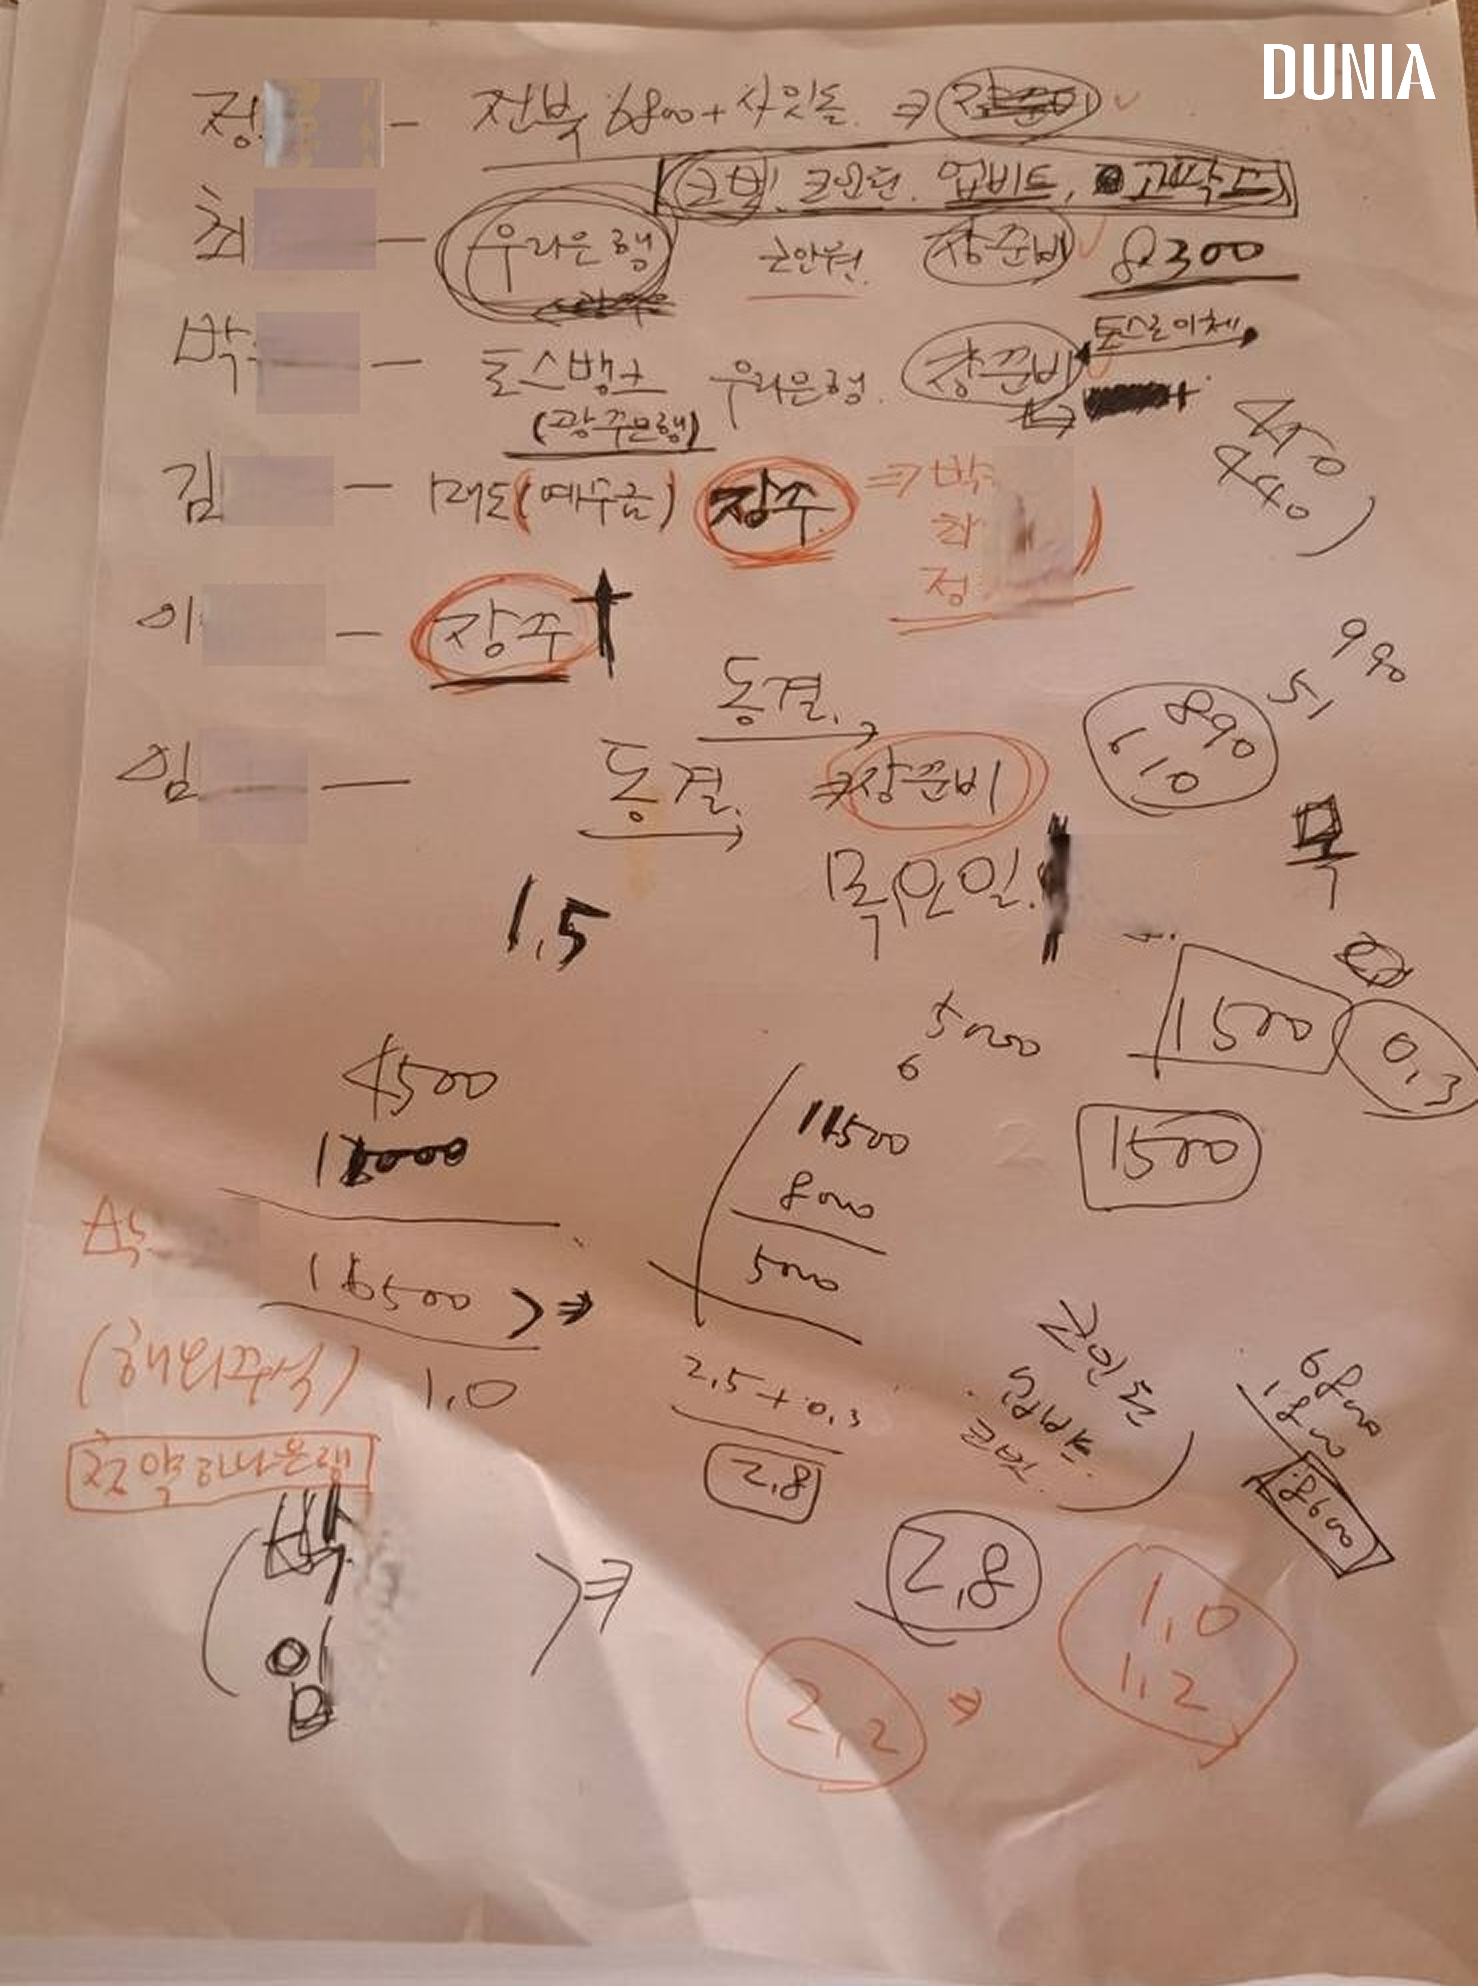 DUNIA
정 — 전부 6800+ 사잇돌 ⇒
코빗. 코인원. 업비트, 고팍스
최 — 우리은행 코인원 장준비 8300
박 — 토스뱅크 우리은행. 장준비 토스로이체
(광주은행)
김 — 매도(예수금) 장주 ⇒ 박
최
정
이 — 장주
990
51
890
610
동결.
임 — 동결. ⇒장준비
목요일!
목
1.5
1500
0.3
5000
6
4500
11500
1500
8000
16500
5000
(해외주식)
1.0
2.5+0.3
2.8
코인원
업비트
코빗
6800
1800
8600
청약하나은행
박
임
2.8
1.0
1.2
2.2 ⇒